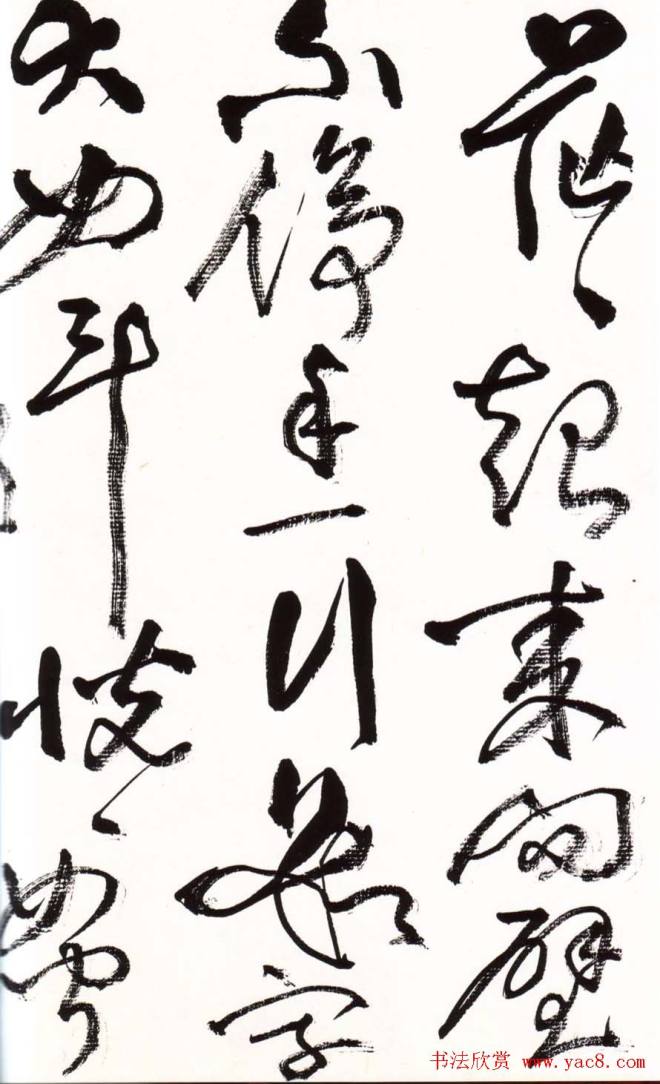 茫〻起來向壁
不停手一行數字
大如斗恍〻如聞
书法欣赏 www.yac8.com